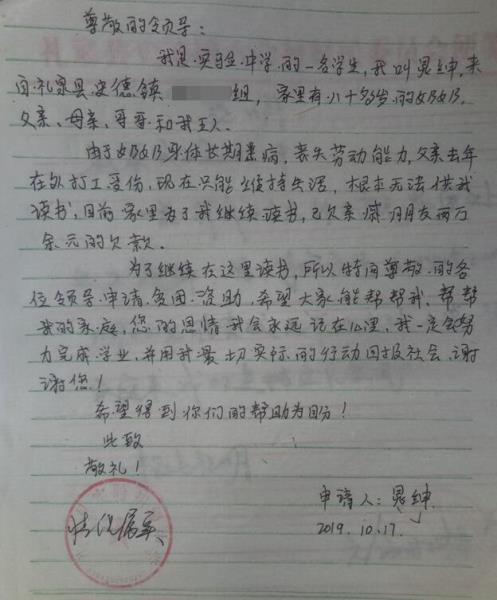 尊敬的领导:
我是实验中学的一名学生,我叫晁绅,来
自礼泉县史德镇 组,家里有八十多岁的奶奶,
父亲、母亲、哥哥和我五人.
由于奶奶身体长期患病,丧失劳动能力,父亲去年
在外打工受伤,现在只能维持生活,根本无法供我
读书,目前家里为了我继续读书,已欠亲戚朋友两万
余元的欠款.
为了继续在这里读书,所以特向尊敬的各
位领导申请贫困资助,希望大家能帮帮我,帮帮
我的家庭,您的恩情我会永远记在心里,我一定会努
力完成学业,并用我最切实际的行动回报社会,谢
谢您!
希望得到你们的帮助为盼!
此致
敬礼!
申请人:晁绅
情况属实
2019.10.17